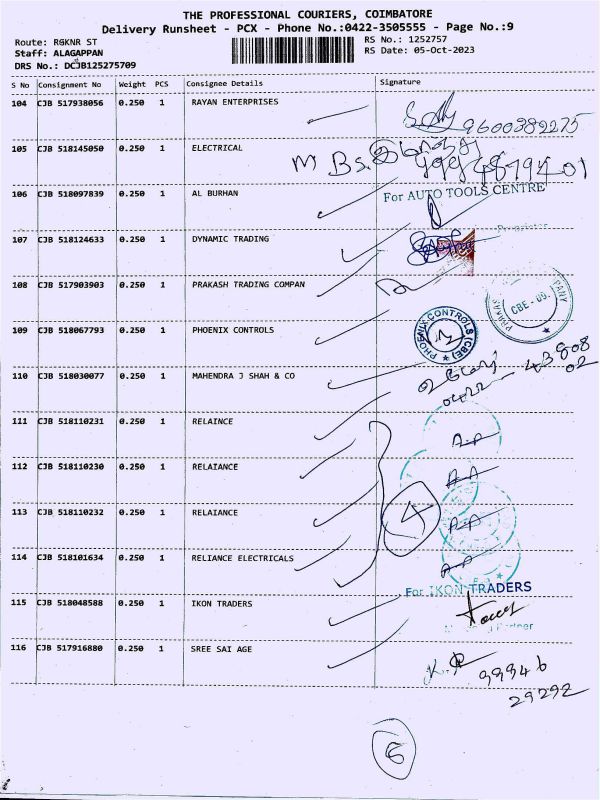 THE PROFESSIONAL COURIERS, COIMBATORE
Delivery Runsheet - PCX - Phone No.:0422-3505555 - Page No.:9
Route: RGKNR ST
RS No.: 1252757
Staff: ALAGAPPAN
RS Date: 05-Oct-2023
DRS No.: DCJB125275709
S No Consignment No Weight PCS Consignee Details Signature
104 CJB 517938056 0.250 1 RAYAN ENTERPRISES
9600389275
105 CJB 518145050 0.250 1 ELECTRICAL
106 CJB 518097839 0.250 1 AL BURHAN
For AUTO TOOLS CENTRE
Proprietor
107 CJB 518124633 0.250 1 DYNAMIC TRADING
108 CJB 517903903 0.250 1 PRAKASH TRADING COMPAN
109 CJB 518067793 0.250 1 PHOENIX CONTROLS
PHOENIX CONTROLS (CBE)
110 CJB 518030077 0.250 1 MAHENDRA J SHAH & CO
111 CJB 518110231 0.250 1 RELAINCE
112 CJB 518110230 0.250 1 RELAIANCE
113 CJB 518110232 0.250 1 RELAIANCE
4
114 CJB 518101634 0.250 1 RELIANCE ELECTRICALS
For IKON TRADERS
115 CJB 518048588 0.250 1 IKON TRADERS
Partner
116 CJB 517916880 0.250 1 SREE SAI AGE
99946
29292
6